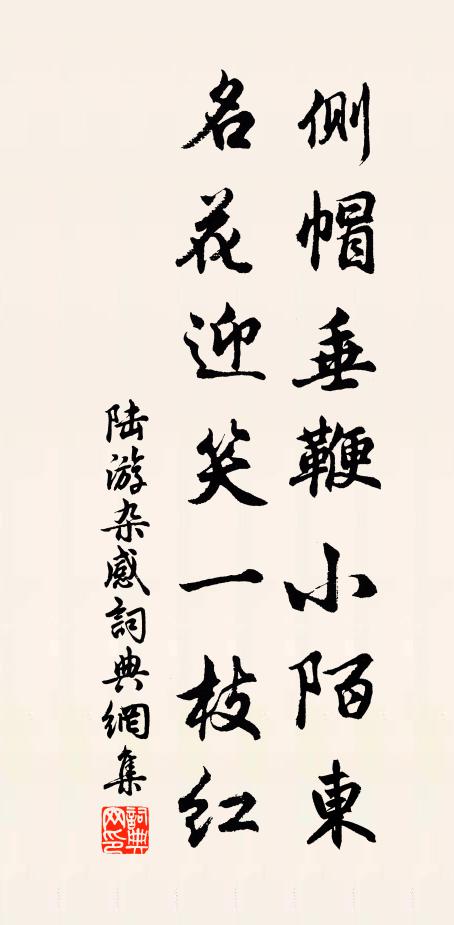 侧帽垂鞭小陌東
名花迎笑一枝红
陆游杂感詞典網集
詞典網印